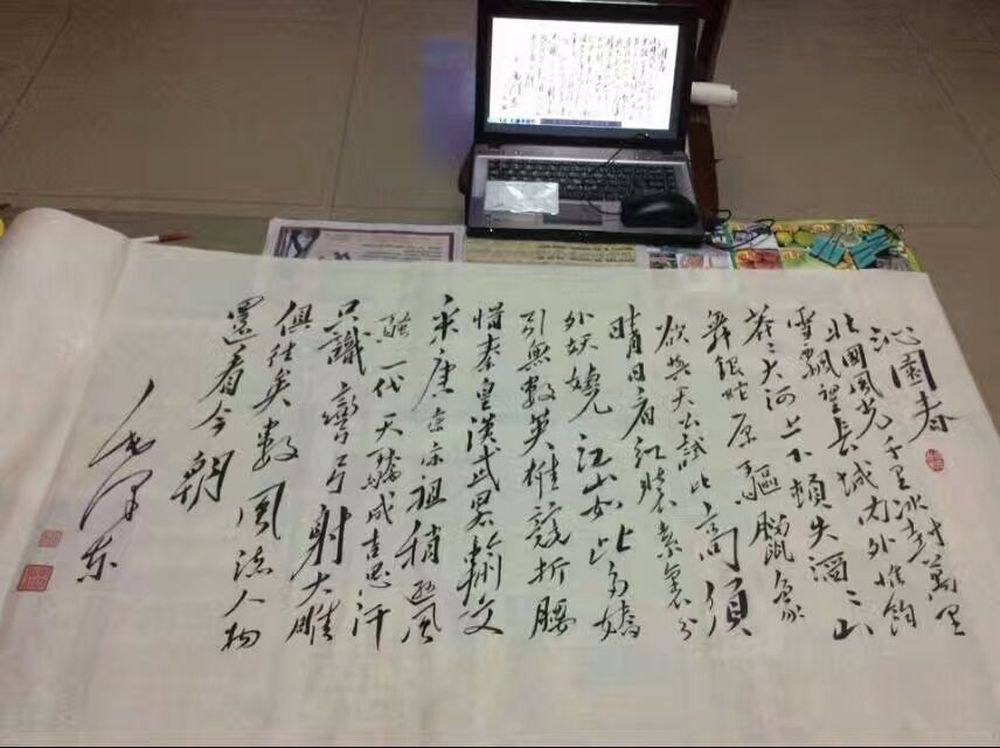 沁園春
北國風光千里冰封萬里
雪飄望長城内外惟餘
莽〻大河上下頓失滔〻山
舞銀蛇原驅臘象
欲與天公試比高須
晴日看紅裝素裹分
外妖嬈江山如此多嬌
引無數英雄競折腰
惜秦皇漢武畧輸文
采唐宗宋祖稍遜風
騷一代天驕成吉思汗
只識彎弓射大雕
俱往矣數風流人物
還看今朝
毛澤東